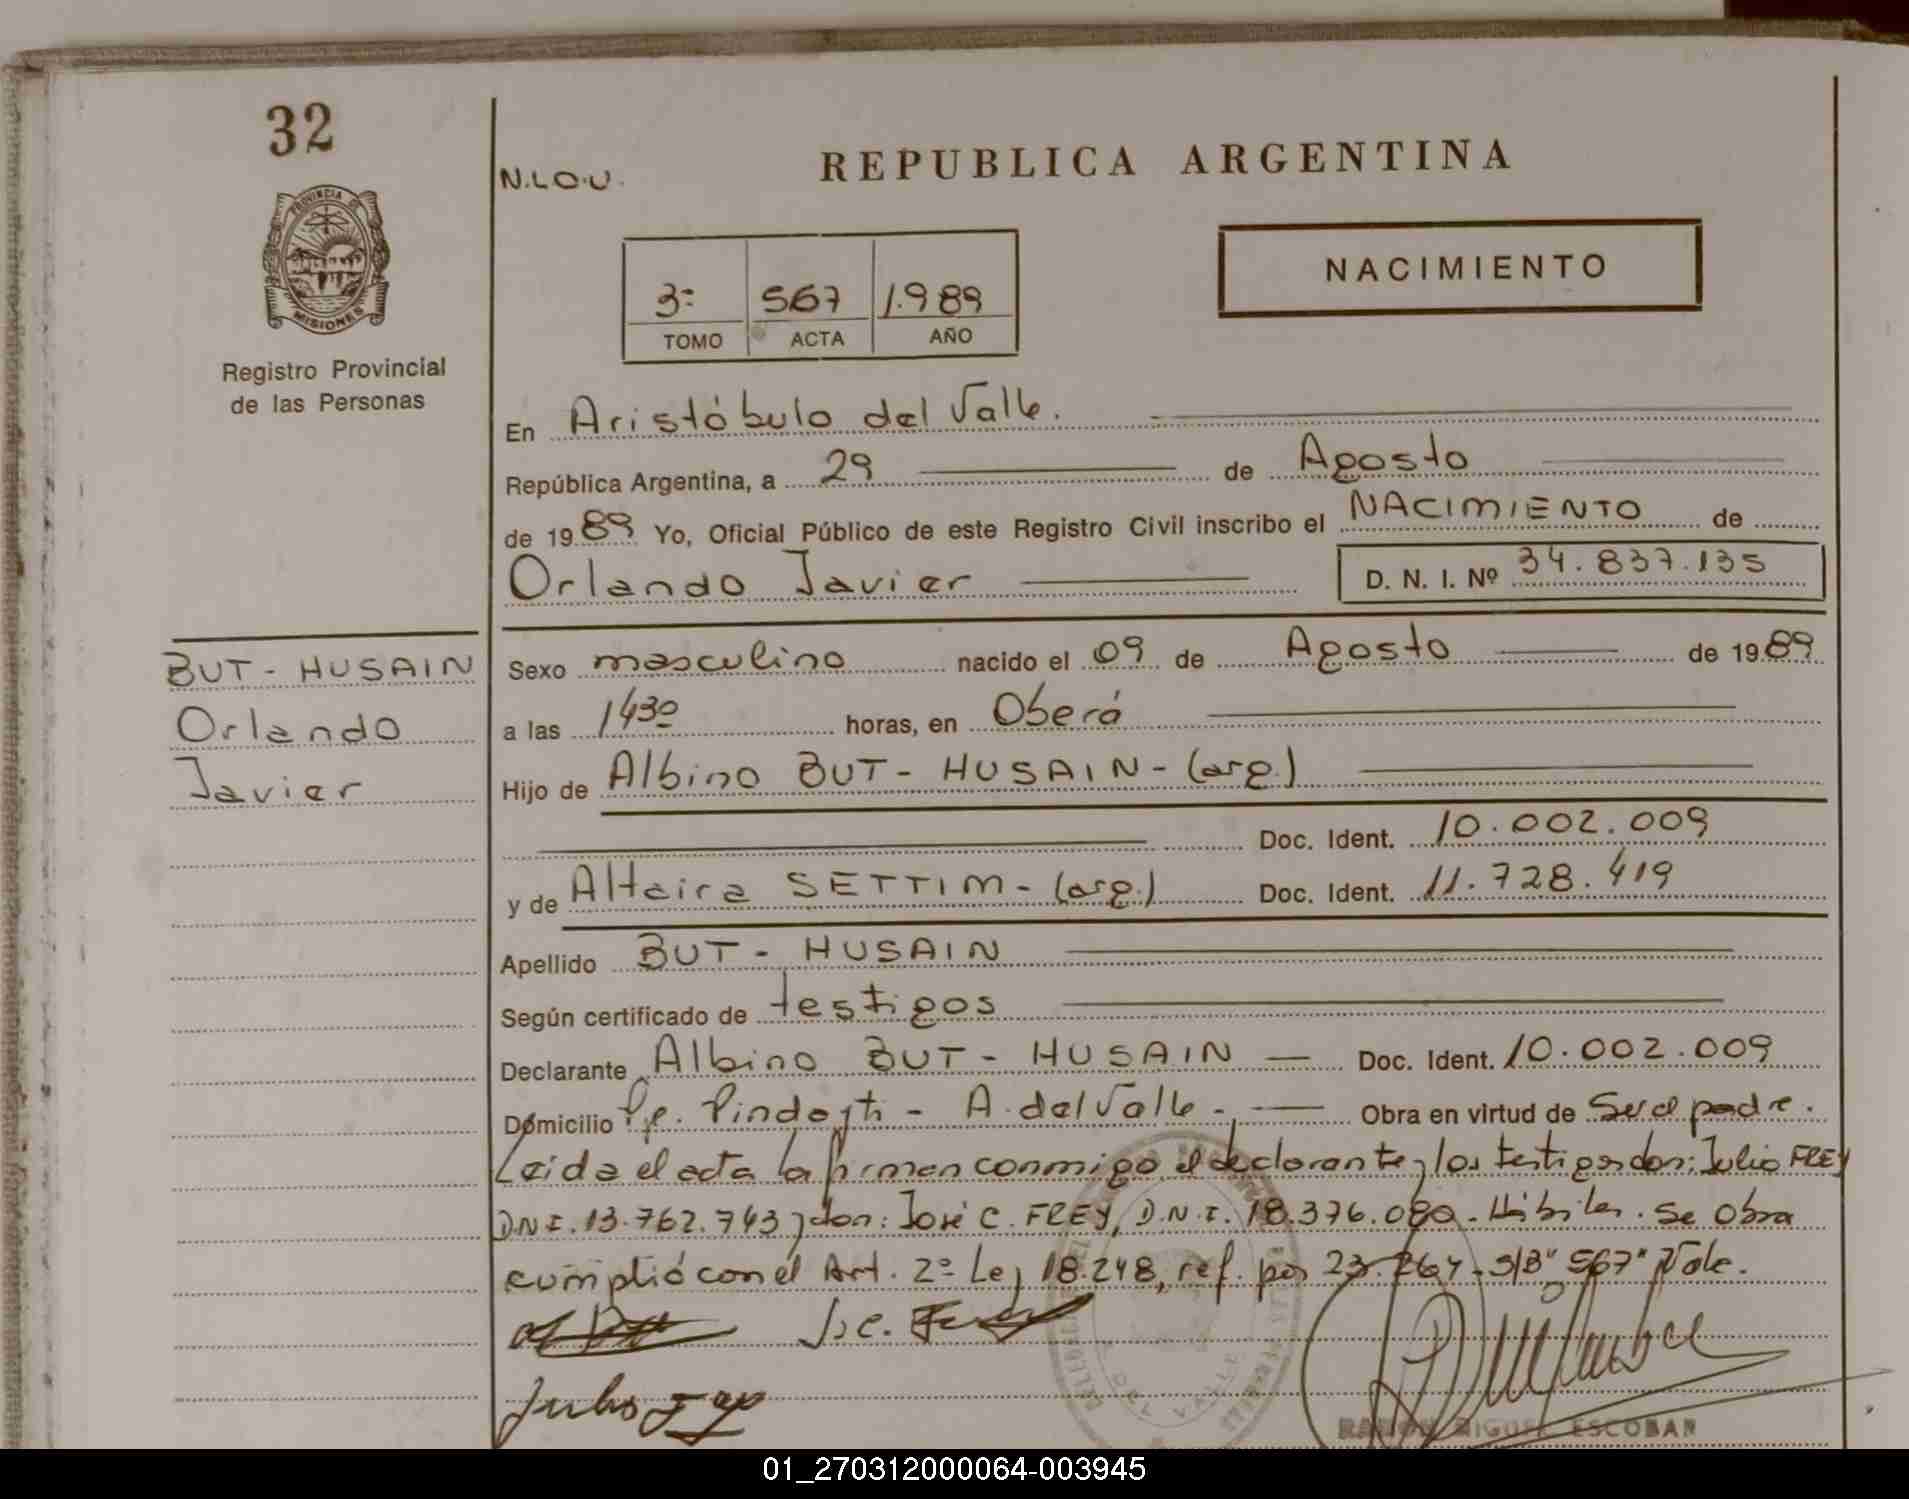 32
N.L.O.U.
REPUBLICA ARGENTINA
PROVINCIA DE
MISIONES
Registro Provincial
de las Personas
3º 567 1.989
TOMO ACTA AÑO
NACIMIENTO
En Aristóbulo del Valle.
República Argentina, a 29 de Agosto
de 1989 Yo, Oficial Público de este Registro Civil inscribo el NACIMIENTO de
Orlando Javier D. N. I. Nº 34.837.135
BUT - HUSAIN
Orlando
Javier
Sexo masculino nacido el 09 de Agosto de 1989
a las 1430 horas, en Oberá
Hijo de Albino BUT - HUSAIN - (arg.)
Doc. Ident. 10.002.009
y de Altaira SETTIM - (arg.) Doc. Ident. 11.728.419
Apellido BUT - HUSAIN
Según certificado de testigos
Declarante Albino BUT - HUSAIN Doc. Ident. 10.002.009
Domicilio Pje. Pindoyti - A. del Valle - Obra en virtud de Ser el padre.
Leida el acta la firman conmigo el declarante y los testigos don: Julio FREY
D.N.I. 13.762.743 y don: José C. FREY, D.N.I. 18.376.080 - Hábiles. Se obra
cumplió con el Art. 2º Ley 18.248, ref. por 23.264 - S/B "567" Vale.
José C. Frey
Julio Frey
DEL VALLE
RAMON MIGUEL ESCOBAR
01_270312000064-003945